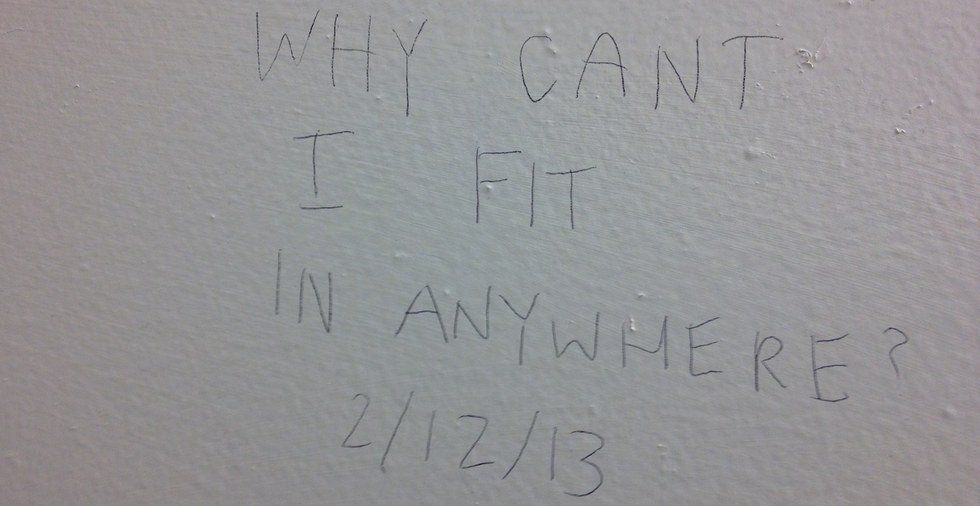 WHY CANT
I FIT
IN ANYWHERE?
2/12/13